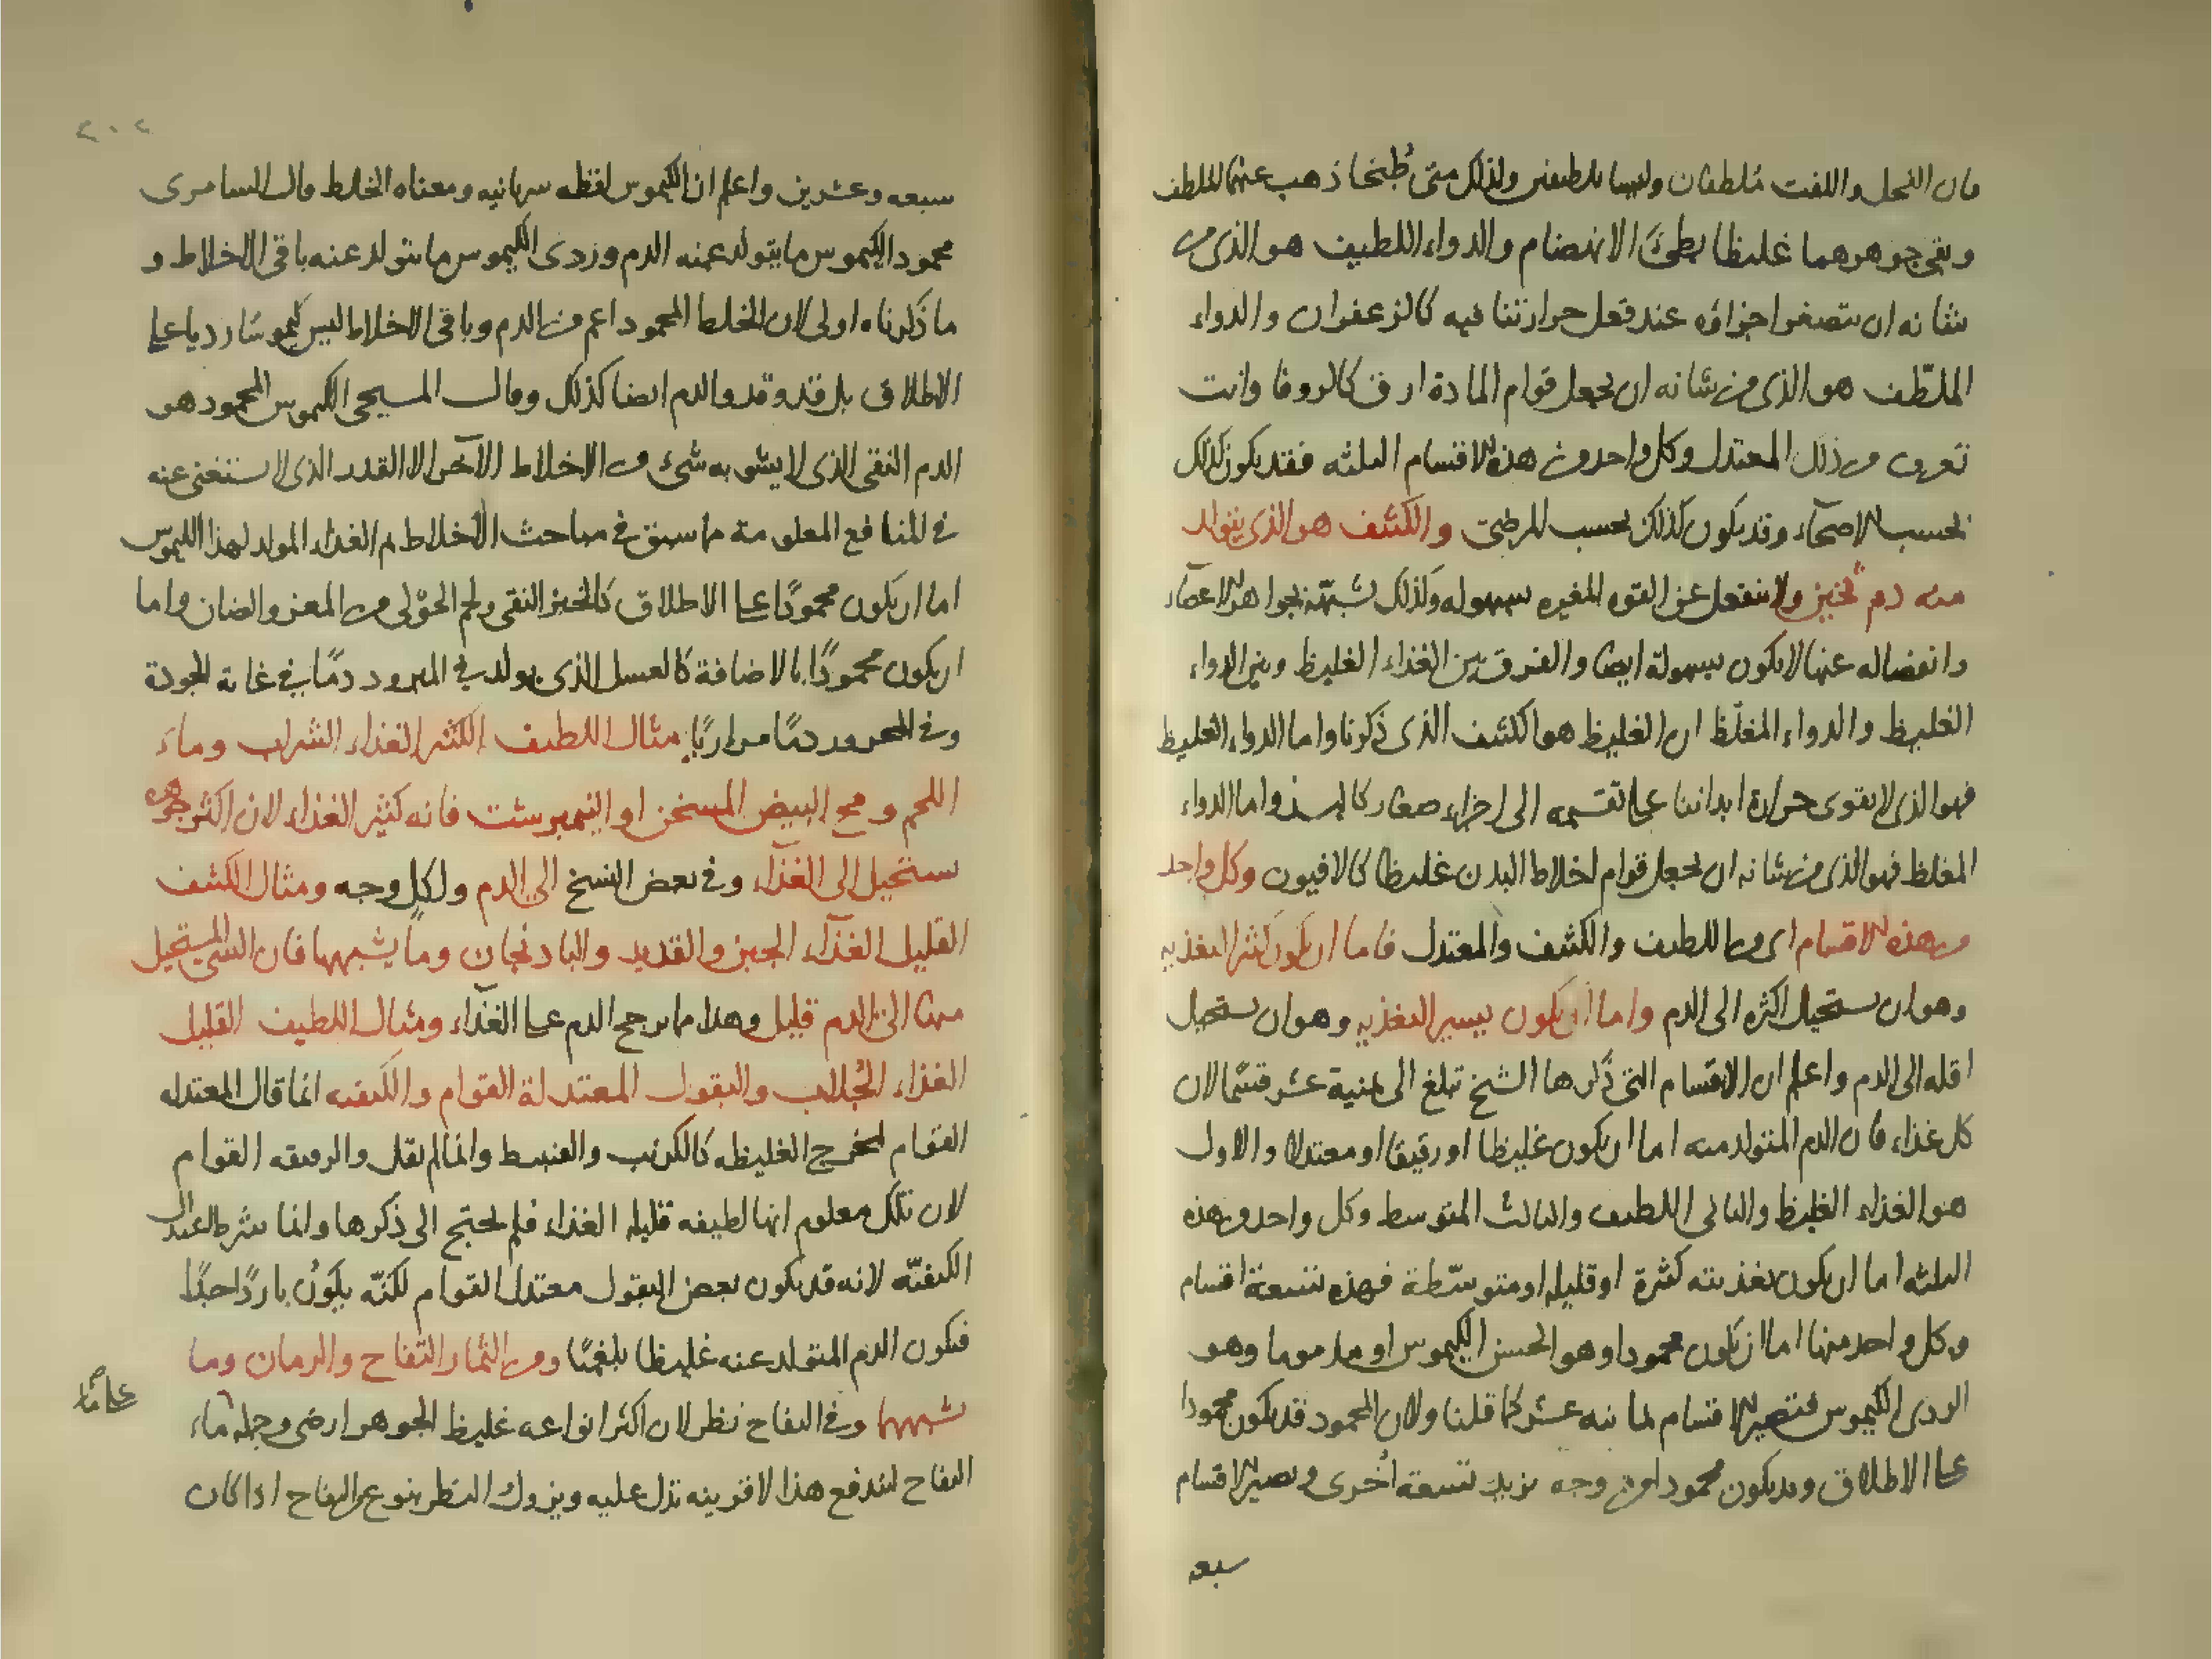 فان الفجل واللفت ملطفان وليسا بلطيفين ولذلك متى طبخا ذهب عنهما التلطيف
وبقى جوهرهما غليظا بطئ الانهضام والدواء اللطيف هو الذى من
شانه ان يتصغر اجزاؤه عند فعل حرارتنا فيه كالزعفران والدواء
الملطف هو الذى من شانه ان يجعل قوام المادة ارق كالزوفا وانت
تعرف من ذلك المعتدل وكل واحد من هذه الاقسام الثلثه فقد يكون كذلك
بحسب الاصحاء وقد يكون كذلك بحسب المرضى والكثيف هو الذى يتولد
منه دم ثخين ولا ينفعل عن القوه المغيره بسهوله وكذلك تشبهه بجواهر الاعضاء
وانفصاله عنها لا يكون بسهولة ايضا والفرق بين الغذاء الغليظ وبين الدواء
الغليظ والدواء المغلظ ان الغليظ هو الكثيف الذى ذكرنا واما الدواء الغليظ
فهو الذى لا يقوى حرارة ابداننا على تقسيمه الى اجزاء صغار واما الدواء
المغلظ فهو الذى من شانه ان يجعل قوام اخلاط البدن غليظا كالافيون وكل واحد
من هذه الاقسام اى من اللطيف والكثيف والمعتدل فاما ان يكون كثير التغذيه
وهو ان يستحيل اكثره الى الدم واما ان يكون يسير التغذيه وهو ان يستحيل
اقله الى الدم واعلم ان الاقسام التى ذكرها الشيخ تبلغ الى ثمنية عشر قسما لان
كل غذاء فان الدم المتولد منه اما ان يكون غليظا او رقيقا او معتدلا والاول
هو الغذاء الغليظ والثانى اللطيف والثالث المتوسط وكل واحد من هذه
الثلثه اما ان يكون تغذيته كثيرة او قليله او متوسطة فهذه تسعة اقسام
وكل واحد منها اما ان يكون محمودا وهو الحسن الكيموس او مذموما وهو
الردى الكيموس فتصير الاقسام ثمانيه عشر كما قلنا ولان المحمود قد يكون محمودا
على الاطلاق وقد يكون محمودا من وجه يزيد تسعة اخرى وتصير الاقسام
سبعه
٢٠٢
سبعه وعشرين واعلم ان الكيموس لفظه سريانيه ومعناه الخلط قال السامرى
محمود الكيموس ما يتولد عنه الدم وردى الكيموس ما يتولد عنه باقى الاخلاط و
ما ذكرناه اولى لان الخلط المحمود اعم من الدم وباقى الاخلاط ليس كيموسا رديا على
الاطلاق بل قد وقد والدم ايضا كذلك وقال المسيحى الكيموس المحمود هو
الدم النقى الذى لا يشوبه شئ من الاخلاط الآخر الا القدر الذى لا يستغنى عنه
فى المنافع المعلومة ما سبق فى مباحث الاخلاط ثم الغذاء المولد لهذا الكيموس
اما ان يكون محمودا على الاطلاق كالخبز النقى ولحم الحولى من المعز والضان واما
ان يكون محمودا بالاضافة كالعسل الذى يولد فى المبرود دما فى غاية الجودة
وفى المحرور دما مراريا مثال اللطيف الكثير الغذاء الشراب وماء
اللحم ومح البيض المسخن او النيمبرشت فانه كثير الغذاء لان اكثر جوهره
يستحيل الى الغذاء وفى بعض النسخ الى الدم ولكل وجه ومثال الكثيف
القليل الغذاء الجبن والقديد والباذنجان وما يشبهها فان الشى المستحيل
منها الى الدم قليل وهذا ما يرجح الدم على الغذاء ومثال اللطيف القليل
الغذاء الجُلاب والبقول المعتدلة القوام والكيفيه انما قال المعتدله
القوام ليخرج الغليظه كالكرنب والقنبيط وانما لم يقل والرقيقه القوام
لان تلك معلوم انها لطيفه قليله الغذاء فلم يحتج الى ذكرها وانما شرط اعتدال
الكيفيّه لانه قد يكون بعض البقول معتدل القوام لكنّه يكون باردا جدًا
فيكون الدم المتولد عنه غليظا بلغميًا ومن الثمار التفاح والرمان وما
يشبهها وفى التفاح نظر لان اكثر انواعه غليظ الجوهر ارضى وحمله ماء
التفاح ليندفع هذا لا قرينه تدل عليه ويزول النظر بنوع من التفاح اذا كان
على ماء